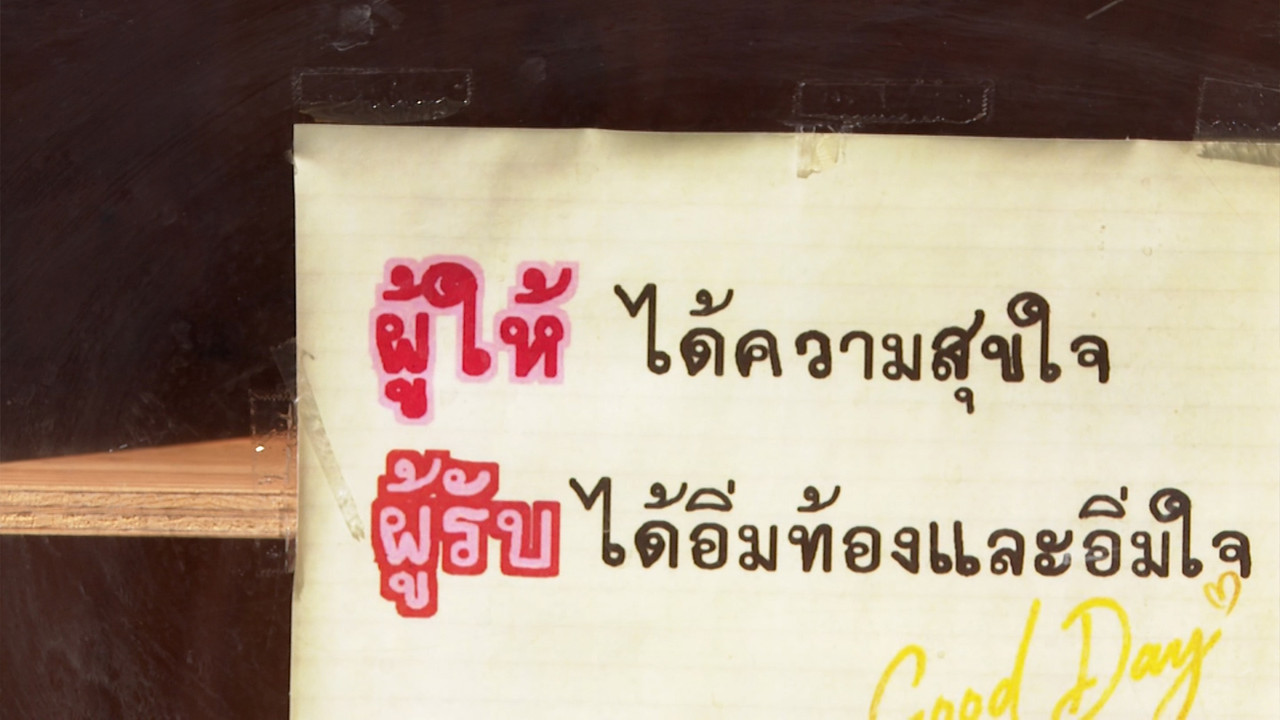 ผู้ให้ ได้ความสุขใจ
ผู้รับ ได้อิ่มท้องและอิ่มใจ
Good Day